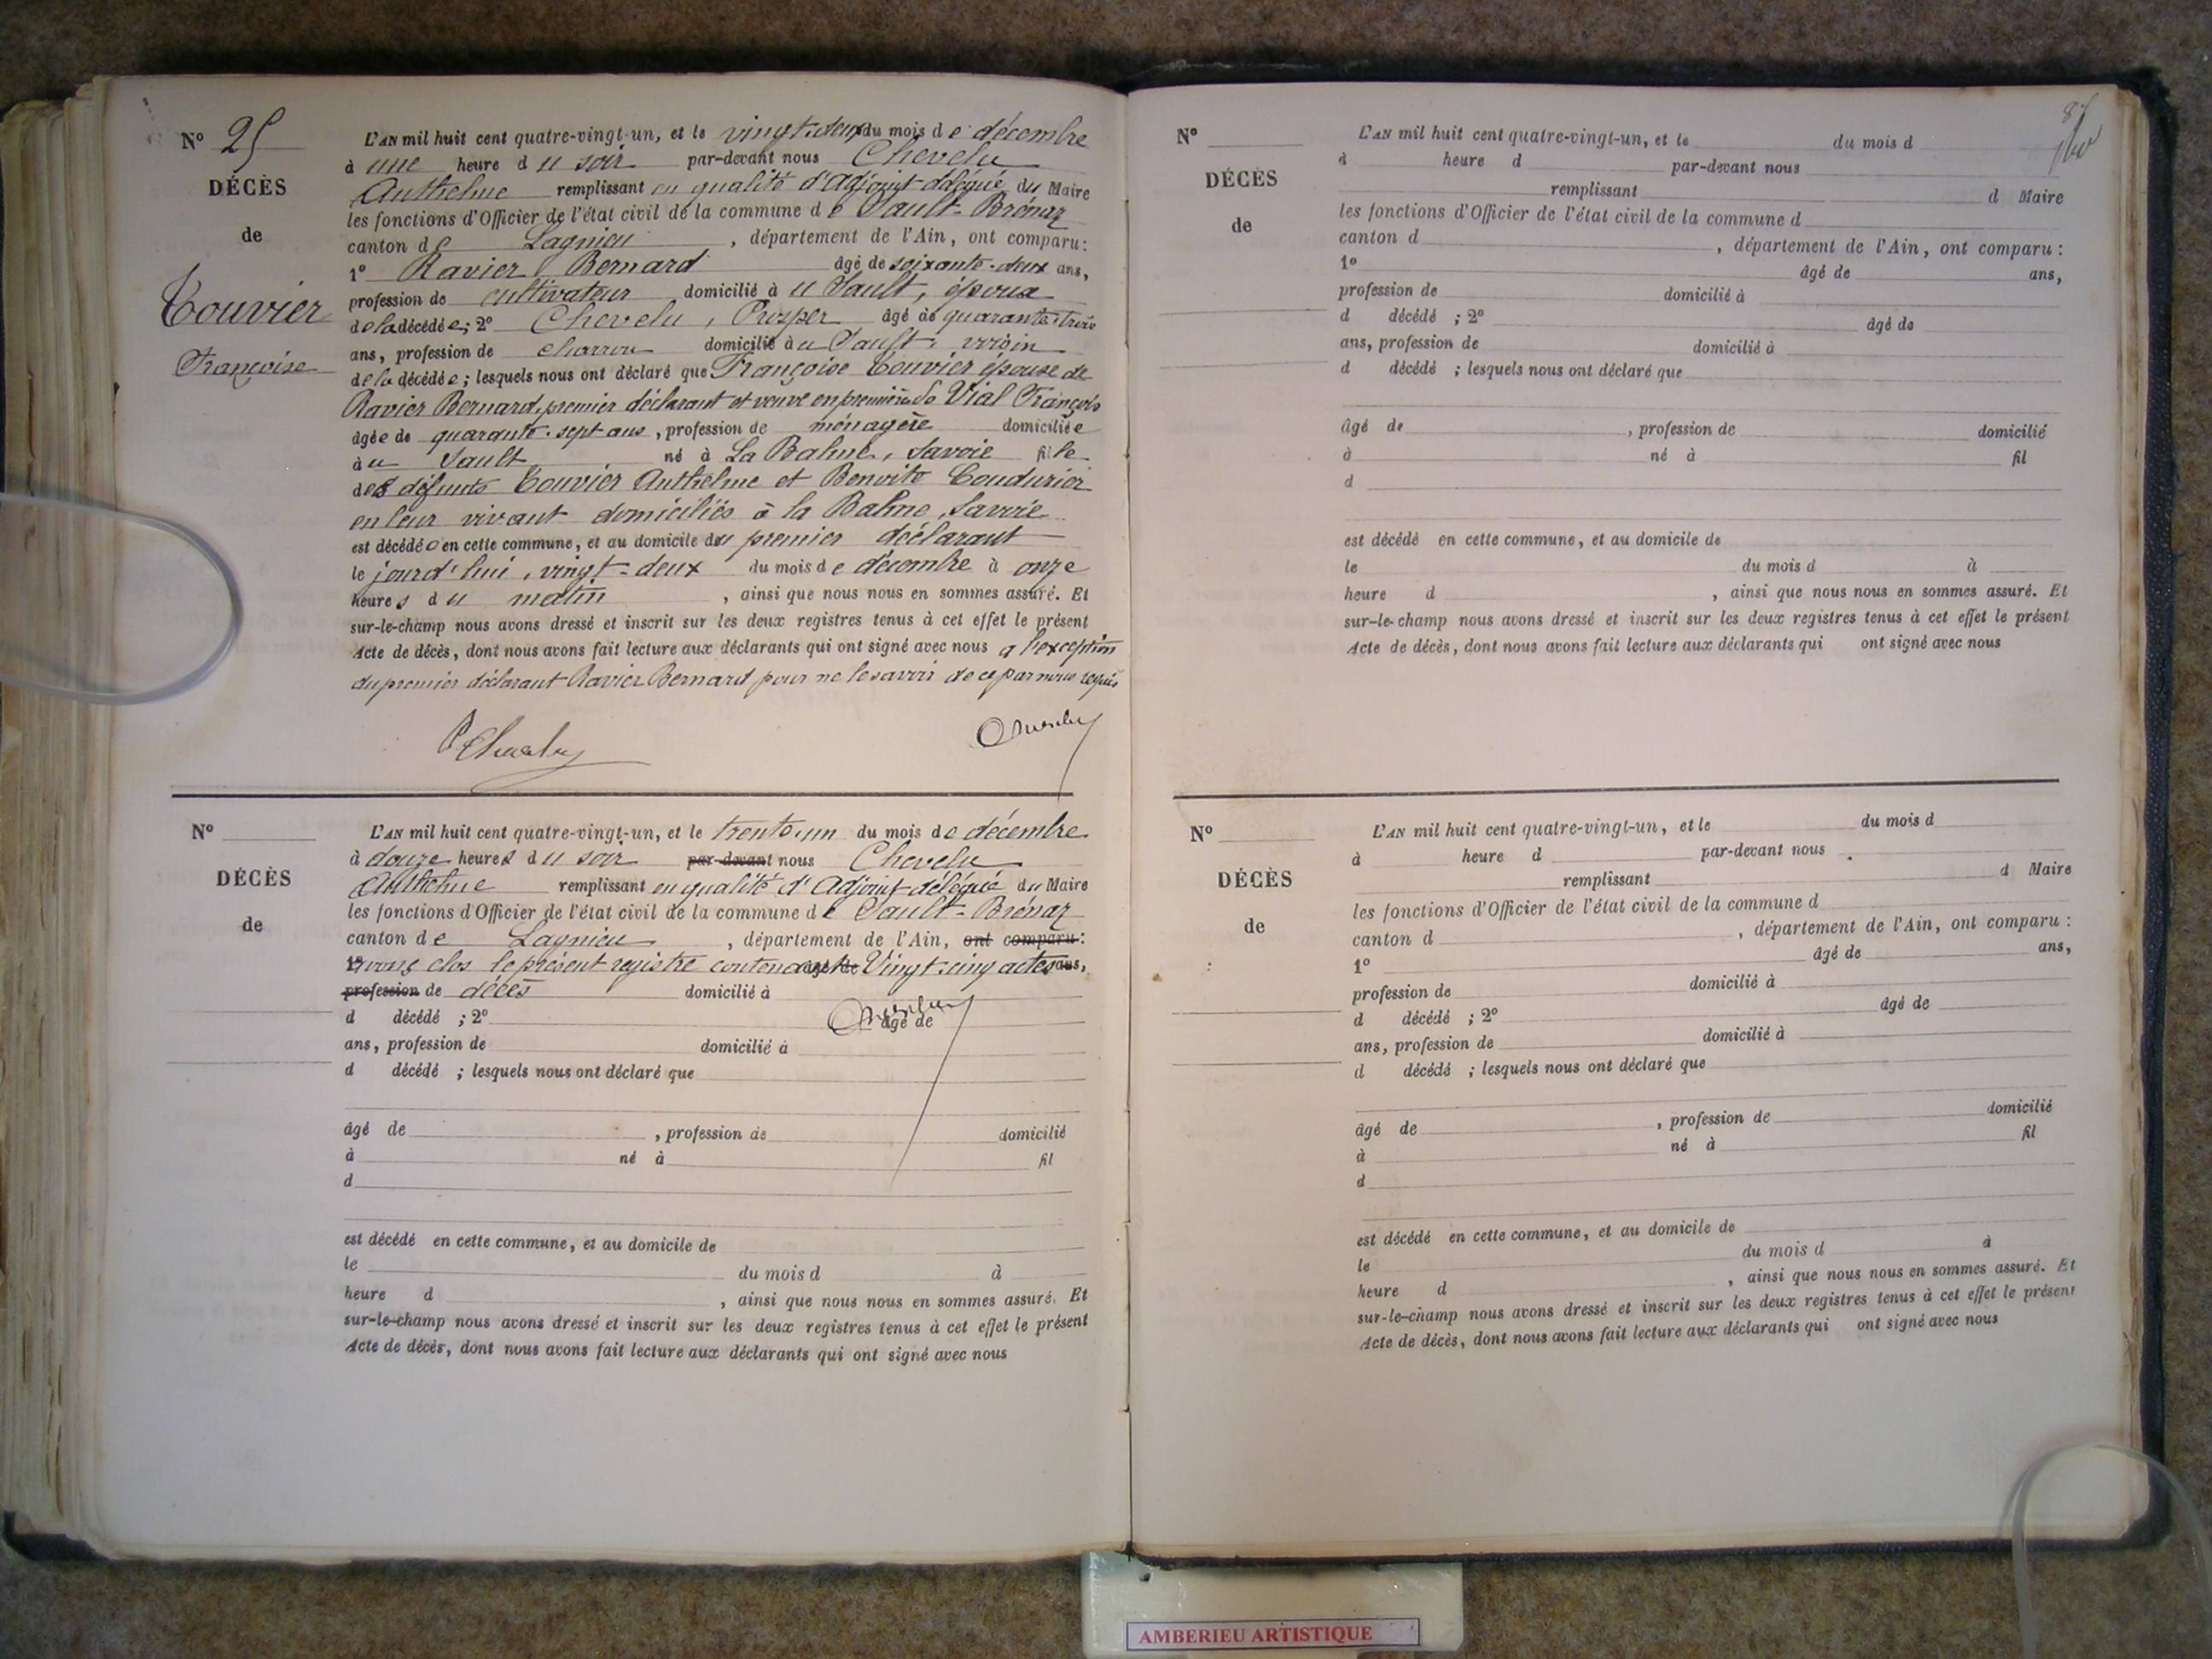 N° 25
DÉCÈS
de
Touvier
Françoise
L'AN mil huit cent quatre-vingt-un, et le vingt-deux du mois de décembre
à une heure du soir par-devant nous Chevelu
Anthelme remplissant en qualité d'Adjoint délégué du Maire
les fonctions d'Officier de l'état civil de la commune de Sault-Brénaz
canton de Lagnieu, département de l'Ain, ont comparu:
1° Ravier Bernard âgé de soixante-deux ans,
profession de cultivateur domicilié à u Sault, époux
de la décédée; 2° Chevelu, Prosper âgé de quarante-trois
ans, profession de charron domicilié au Sault, voisin
de la décédée; lesquels nous ont déclaré que Françoise Touvier épouse de
Ravier Bernard, premier déclarant et veuve en première de Vial François
âgée de quarante-sept ans, profession de ménagère domiciliée
à u Sault né à La Balme, Savoie fille
des défunts Touvier Anthelme et Benoite Coudurier
en leur vivant domiciliés à la Balme, Savoie
est décédée en cette commune, et au domicile du premier déclarant
le jourd'hui, vingt-deux du mois de décembre à onze
heures du matin, ainsi que nous nous en sommes assuré. Et
sur-le-champ nous avons dressé et inscrit sur les deux registres tenus à cet effet le présent
Acte de décès, dont nous avons fait lecture aux déclarants qui ont signé avec nous a l'exception
du premier déclarant Ravier Bernard pour ne le savoir de ce par nous requis
P Chevelu
Chevelu
N°
DÉCÈS
de
L'AN mil huit cent quatre-vingt-un, et le trente-un du mois de décembre
à douze heures du soir par-devant nous Chevelu
Anthelme remplissant en qualité d'Adjoint délégué du Maire
les fonctions d'Officier de l'état civil de la commune de Sault-Brénaz
canton de Lagnieu, département de l'Ain, ont comparu:
1° avons clos le présent registre contenant âgé de Vingt-cinq actes ans,
profession de décès domicilié à
Chevelu
d décédé ; 2° âgé de
ans, profession de domicilié à
d décédé ; lesquels nous ont déclaré que
âgé de , profession de domicilié
à né à fil
d
est décédé en cette commune, et au domicile de
le du mois d à
heure d , ainsi que nous nous en sommes assuré. Et
sur-le-champ nous avons dressé et inscrit sur les deux registres tenus à cet effet le présent
Acte de décès, dont nous avons fait lecture aux déclarants qui ont signé avec nous
87
N°
DÉCÈS
de
L'AN mil huit cent quatre-vingt-un, et le du mois d
à heure d par-devant nous
remplissant d Maire
les fonctions d'Officier de l'état civil de la commune d
canton d , département de l'Ain, ont comparu :
1° âgé de ans,
profession de domicilié à
d décédé ; 2° âgé de
ans, profession de domicilié à
d décédé ; lesquels nous ont déclaré que
âgé de , profession de domicilié
à né à fil
d
est décédé en cette commune, et au domicile de
le du mois d à
heure d , ainsi que nous nous en sommes assuré. Et
sur-le-champ nous avons dressé et inscrit sur les deux registres tenus à cet effet le présent
Acte de décès, dont nous avons fait lecture aux déclarants qui ont signé avec nous
N°
DÉCÈS
de
L'AN mil huit cent quatre-vingt-un, et le du mois d
à heure d par-devant nous
remplissant d Maire
les fonctions d'Officier de l'état civil de la commune d
canton d , département de l'Ain, ont comparu :
1° âgé de ans,
profession de domicilié à
d décédé ; 2° âgé de
ans, profession de domicilié à
d décédé ; lesquels nous ont déclaré que
âgé de , profession de domicilié
à né à fil
d
est décédé en cette commune, et au domicile de
le du mois d à
heure d , ainsi que nous nous en sommes assuré. Et
sur-le-champ nous avons dressé et inscrit sur les deux registres tenus à cet effet le présent
Acte de décès, dont nous avons fait lecture aux déclarants qui ont signé avec nous
AMBERIEU ARTISTIQUE